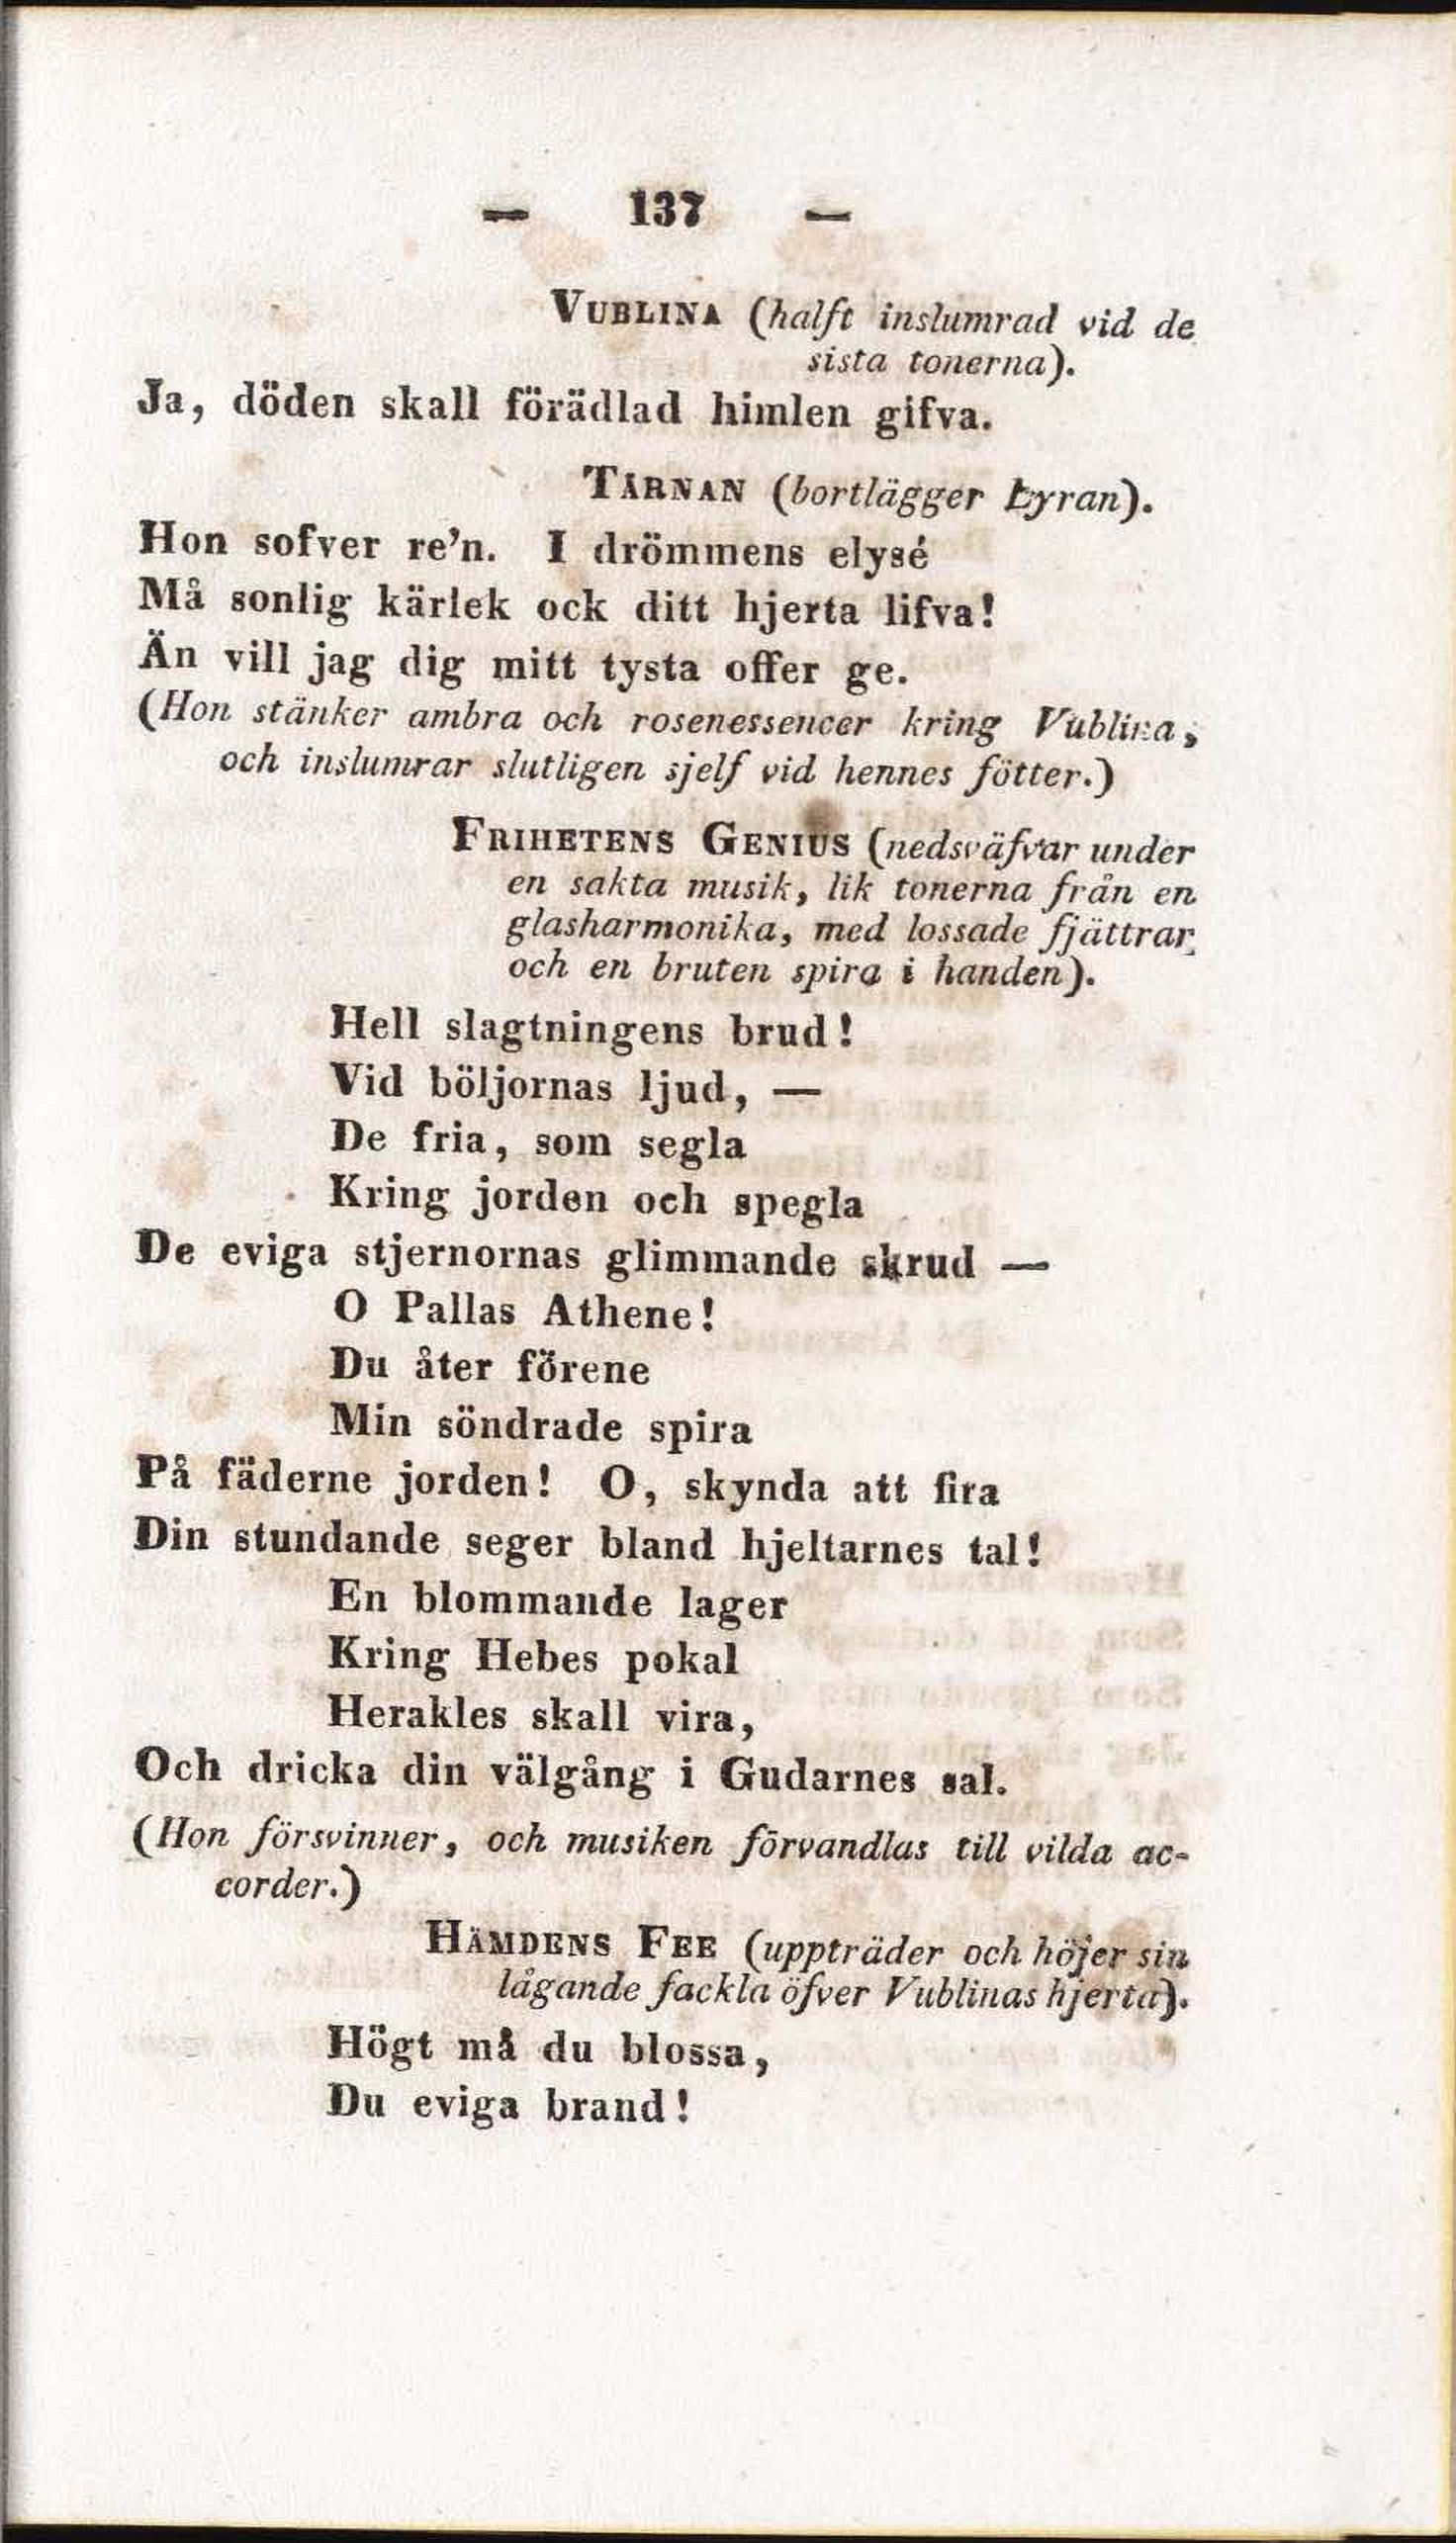 — 137 —
VUBLINA (halft inslumrad vid de
sista tonerna).
Ja, döden skall förädlad himlen gifva.
TÄRNAN (bortlägger Lyran).
Hon sofver re'n. I drömmens elysé
Må sonlig kärlek ock ditt hjerta lifva!
Än vill jag dig mitt tysta offer ge.
(Hon stänker ambra och rosenessencer kring Vublina,
och inslumrar slutligen sjelf vid hennes fötter.)
FRIHETENS GENIUS (nedsväfvar under
en sakta musik, lik tonerna från en
glasharmonika, med lossade fjättrar
och en bruten spira i handen).
Hell slagtningens brud!
Vid böljornas ljud, —
De fria, som segla
Kring jorden och spegla
De eviga stjernornas glimmande skrud —
O Pallas Athene!
Du åter förene
Min söndrade spira
På fäderne jorden! O, skynda att fira
Din stundande seger bland hjeltarnes tal!
En blommande lager
Kring Hebes pokal
Herakles skall vira,
Och dricka din välgång i Gudarnes sal.
(Hon försvinner, och musiken förvandlas till vilda ac-
corder.)
HÄMDENS FEE (uppträder och höjer sin
lågande fackla öfver Vublinas hjerta).
Högt må du blossa,
Du eviga brand!